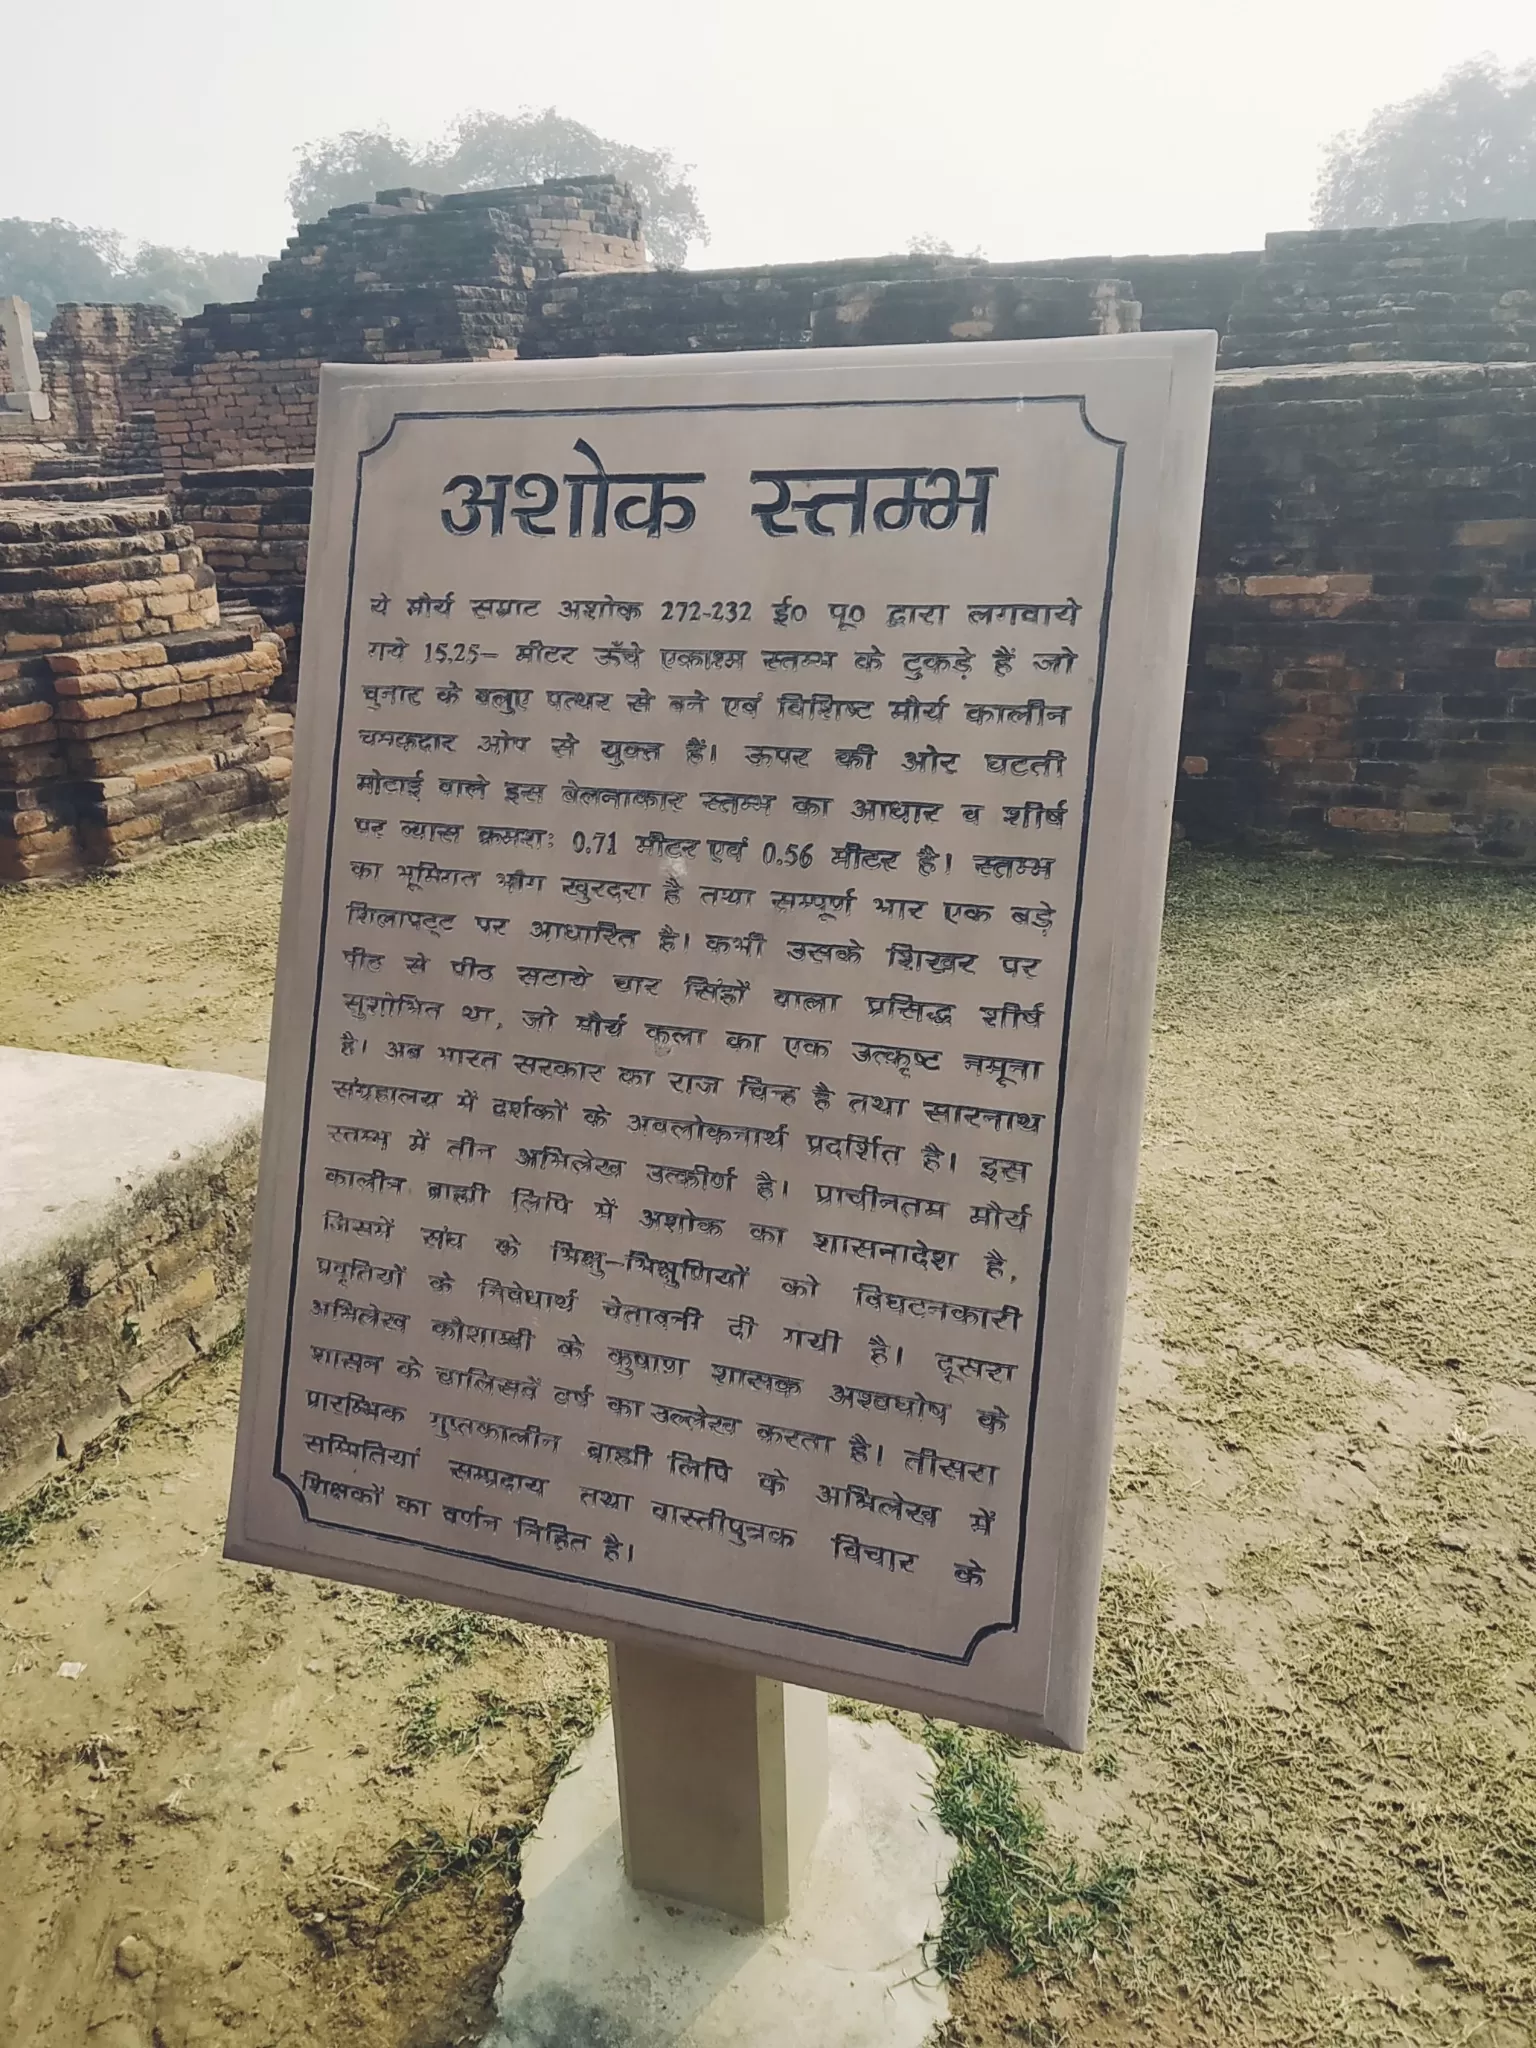 अशोक स्तम्भ
ये मौर्य सम्राट अशोक 272-232 ई० पू० द्वारा लगवाये
गये 15.25- मीटर ऊँचे एकाश्म स्तम्भ के टुकड़े हैं जो
चुनार के बलुए पत्थर से बने एवं विशिष्ट मौर्य कालीन
चमकदार ओप से युक्त हैं। ऊपर की ओर घटती
मोटाई वाले इस बेलनाकार स्तम्भ का आधार व शीर्ष
पर व्यास क्रमशः 0.71 मीटर एवं 0.56 मीटर है। स्तम्भ
का भूमिगत भाग खुरदरा है तथा सम्पूर्ण भार एक बड़े
शिलापट्ट पर आधारित है। कभी उसके शिखर पर
पीठ से पीठ सटाये चार सिंहों वाला प्रसिद्ध शीर्ष
सुशोभित था, जो मौर्य कला का एक उत्कृष्ट नमूना
है। अब भारत सरकार का राज चिन्ह है तथा सारनाथ
संग्रहालय में दर्शकों के अवलोकनार्थ प्रदर्शित है। इस
स्तम्भ में तीन अभिलेख उत्कीर्ण है। प्राचीनतम मौर्य
कालीन ब्राह्मी लिपि में अशोक का शासनादेश है,
जिसमें संघ के भिक्षु-भिक्षुणियों को विघटनकारी
प्रवृतियों के निषेधार्थ चेतावनी दी गयी है। दूसरा
अभिलेख कौशाम्बी के कुषाण शासक अश्वघोष के
शासन के चालिसवें वर्ष का उल्लेख करता है। तीसरा
प्रारम्भिक गुप्तकालीन ब्राह्मी लिपि के अभिलेख में
सम्मितियां सम्प्रदाय तथा वास्तीपुत्रक विचार के
शिक्षकों का वर्णन निहित है।